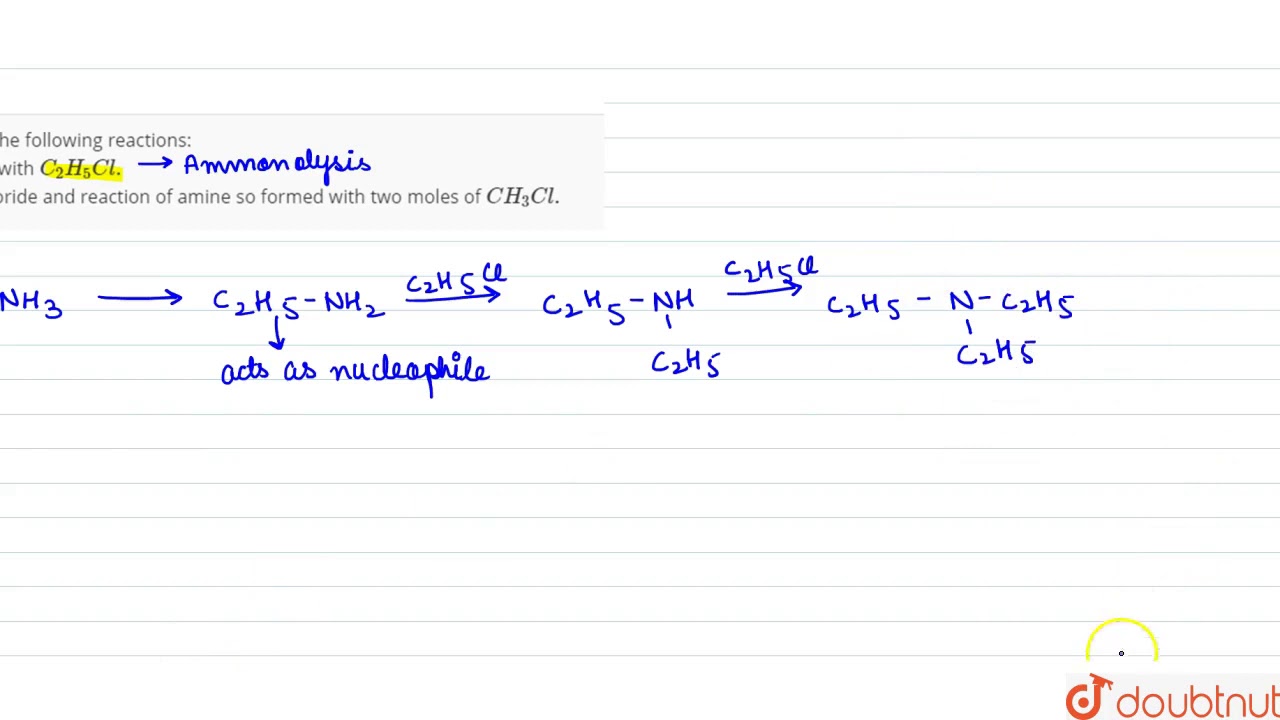 he following reactions:
with C₂H₅Cl. → Ammonolysis
oride and reaction of amine so formed with two moles of CH₃Cl.
NH₃ ⟶ C₂H₅-NH₂ C₂H₅Cl⟶ C₂H₅-NH C₂H₅Cl⟶ C₂H₅-N-C₂H₅
C₂H₅ C₂H₅
acts as nucleophile
doubtnut